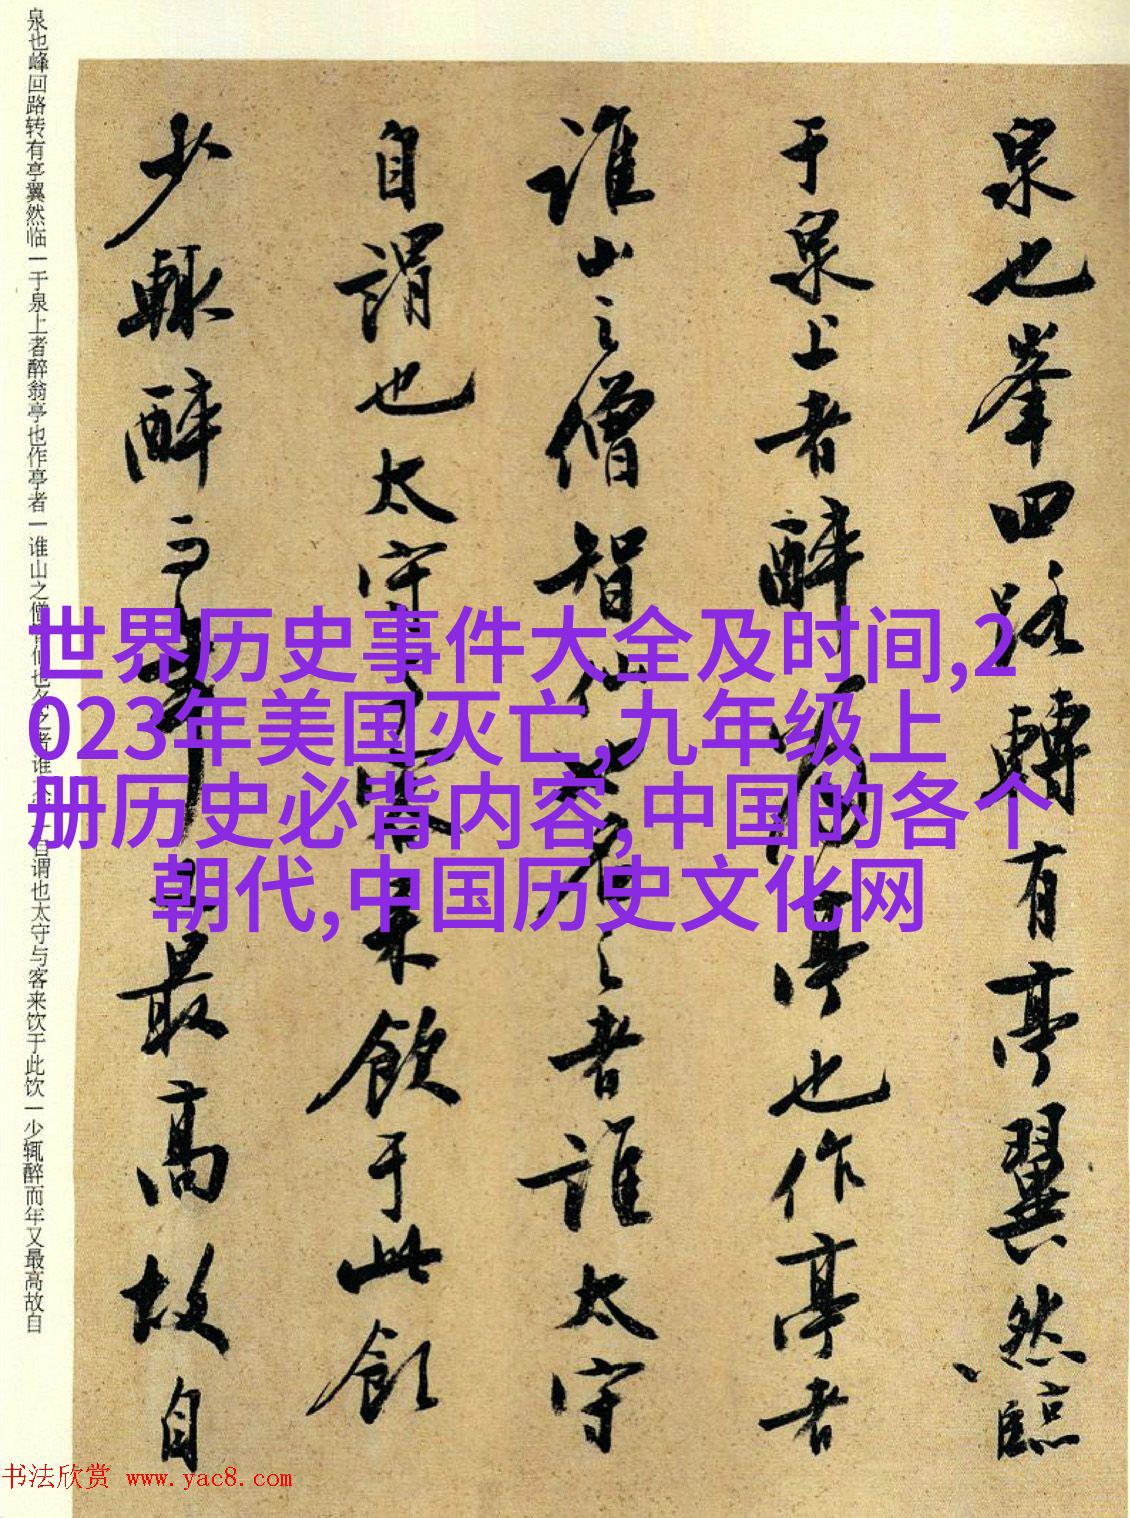 泉也峰回路转有亭翼然临一于泉上者醉翁亭也作亭者一谁山之僧
自谓也太守与客来饮于此饮一少辄醉而年又最高故自
泉也峯回路轉有亭翼然臨
于泉上者醉翁亭也作亭者
誰山之僧智仙也名之者誰太守
自謂也太守与客来飲于此飲
少輒醉而年又最高故自
世界历史事件大全及时间,2
023年美国灭亡,九年级上
册历史必背内容,中国的各个
朝代,中国历史文化网
书法欣赏 www.yac8.com